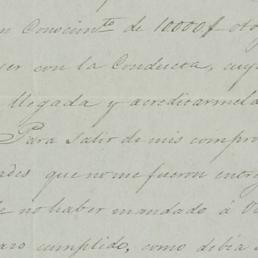 n Conocim.to de 10000 f oto
ser con la Conducta, cuy
llegada y acreditarmela
Para salir de mis compro
ades que no me fueron entre
e no haber mandado á V
azo cumplido, como debia